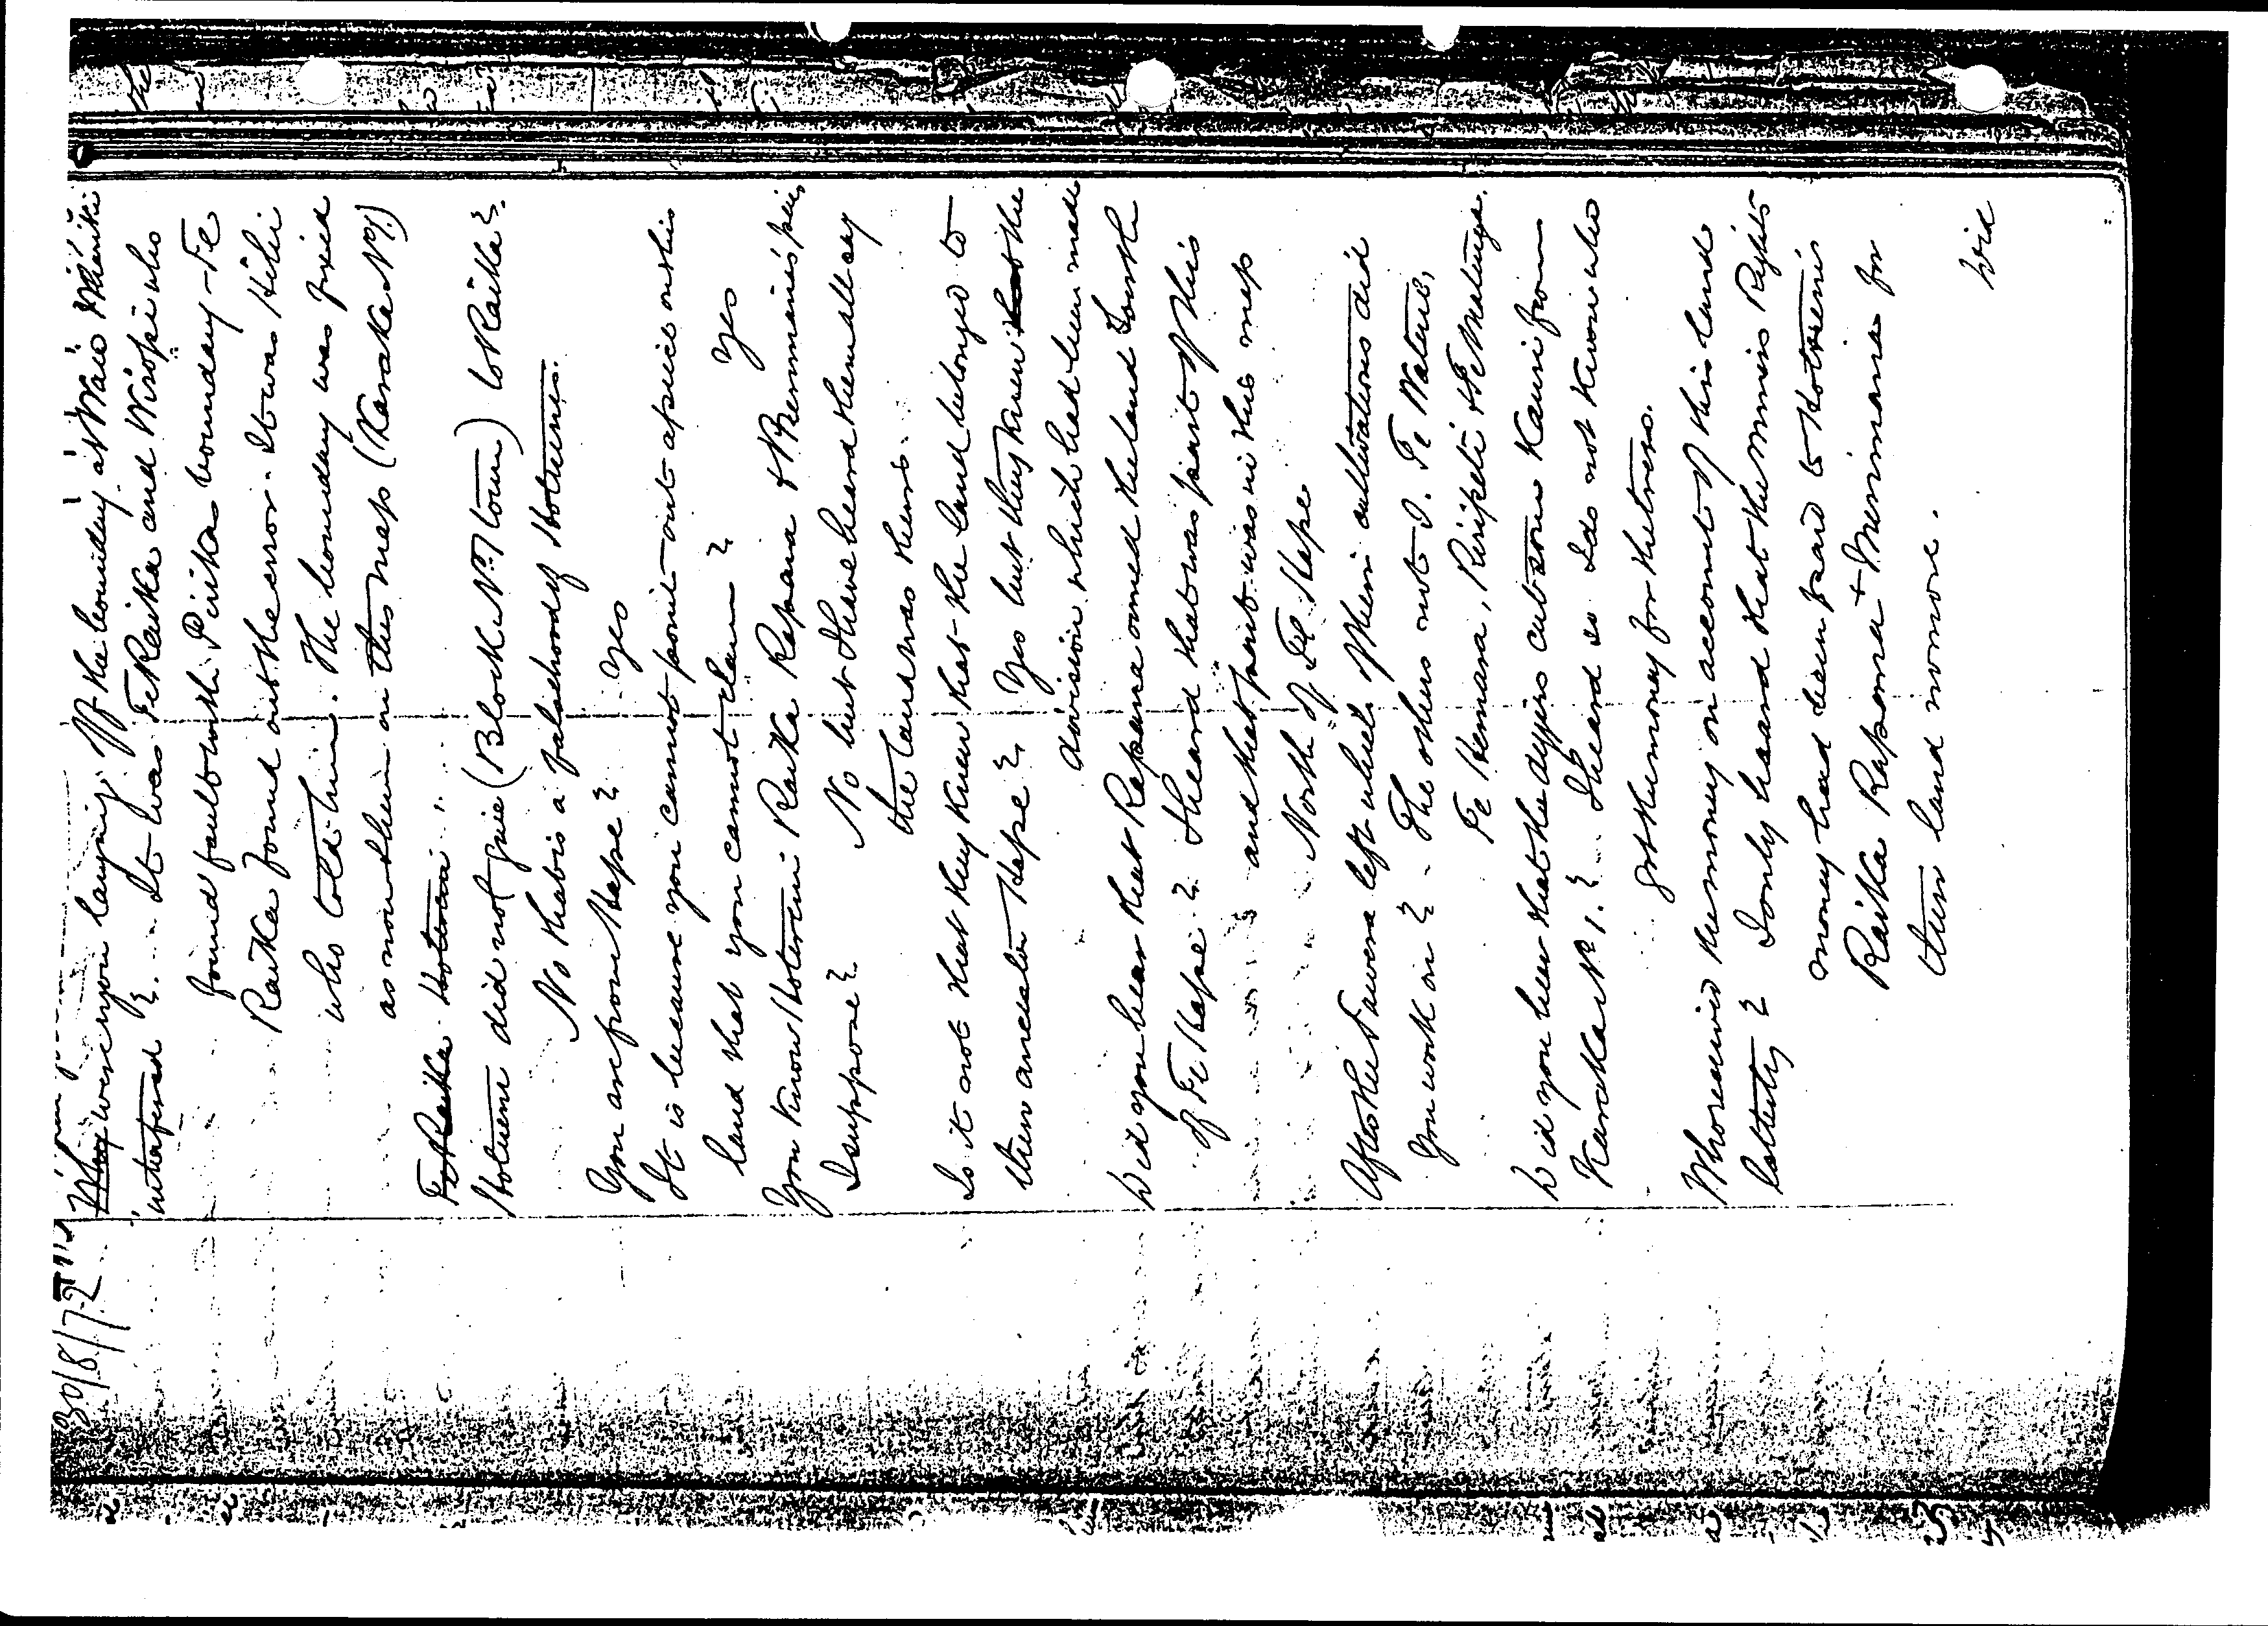 30/8/72
Why were you laying off the boundary at Wai Whariki
interfered ? - It was Te Raika and Wiropi who
found fault with Pirika's boundary - Te
Raika found out the error. It was Hihi
who told him. The boundary was fixed
as now shewn on this map (Karaka No 1)
Te Raika Hotereni
Hotereni did not give (Block No 1 town) to Raika ?
No that is a falsehood of Hotereni.
You are from Hape ? Yes
It is because you cannot point out a piece on this
land that you cannot claim ? Yes
You know Hotereni Raika Rapana &
I suppose ? No but I have heard them all say
the land was theirs.
Is it not that they knew that the land belonged to
their ancestor Hape ? Yes but they knew the
division which had been made
Did you hear that Rapana owned the land South
of Te Hape ? I heard that was part of his
and that part was in this map
North of Te Hape
After the Tawera left which of their cultivations did
you work on ? The others not I. Te Watene,
Te Hemara, Piripeti & Te Matenga.
Did you hear that the diggers cut some Kauri from
Karaka No 1. ? I heard so I do not know who
got the money for the trees.
Who received the money on account of this land
latterly ? I only heard that the Miners Rights
money had been paid to Hotereni
Raika Rapana + Merimana for
their land no more.
Did